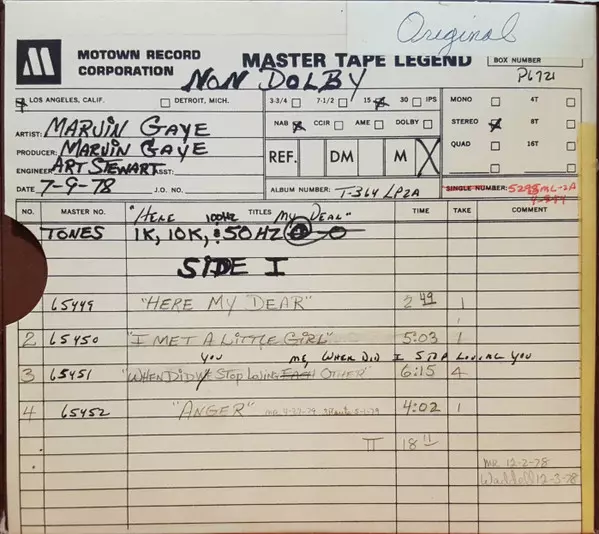 Original
MOTOWN RECORD CORPORATION
MASTER TAPE LEGEND
BOX NUMBER
P6721
NON DOLBY
LOS ANGELES, CALIF. DETROIT, MICH.
3-3/4 7-1/2 15 30 IPS
MONO 4T
NAB CCIR AME DOLBY
STEREO 8T
QUAD 16T
ARTIST: MARVIN GAYE
PRODUCER: MARVIN GAYE
ENGINEER: ART STEWART ASST:
REF. DM M
DATE 7-9-78 J.O. NO.
ALBUM NUMBER: T-364 LP2A
SINGLE NUMBER:
NO. MASTER NO. TITLES TIME TAKE COMMENT
"HERE MY DEAR"
100HZ
TONES 1K, 10K, 50HZ @ 0
SIDE I
65449 "HERE MY DEAR" 2 49 1
2 65450 "I MET A LITTLE GIRL" 5:03 1
YOU ME, WHEN DID I STOP LOVING YOU
3 65451 "WHEN DID WE STOP LOVING EACH OTHER" 6:15 4
4 65452 "ANGER" 4:02 1
TT 18 11
MR 12-2-78
Waddell 12-3-78